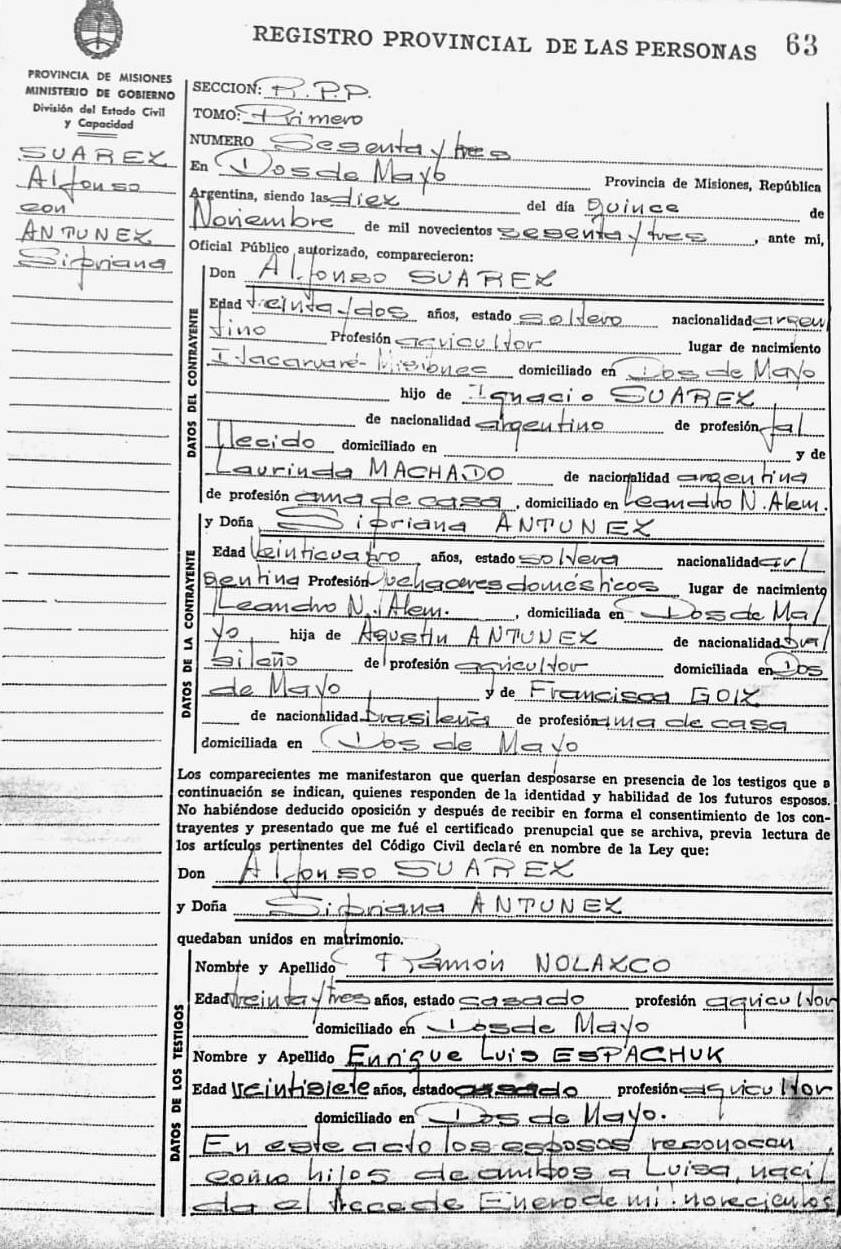 REGISTRO PROVINCIAL DE LAS PERSONAS 63
PROVINCIA DE MISIONES
MINISTERIO DE GOBIERNO
División del Estado Civil
y Capacidad
SUAREZ
Alfonso
con
ANTUNEZ
Sipriana
SECCION: R.P.P.
TOMO: Primero
NUMERO Sesenta y tres
En Dos de Mayo Provincia de Misiones, República
Argentina, siendo las diez del día Quince de
Noviembre de mil novecientos sesenta y tres, ante mi,
Oficial Público autorizado, comparecieron:
DATOS DEL CONTRAYENTE
Don Alfonso SUAREZ
Edad treinta y dos años, estado soltero nacionalidad argen
tino Profesión agricultor lugar de nacimiento
Itacaruaré-Misiones domiciliado en Dos de Mayo
hijo de Ignacio SUAREZ
de nacionalidad argentino de profesión fal
llecido domiciliado en y de
Laurinda MACHADO de nacionalidad argentina
de profesión ama de casa, domiciliado en Leandro N. Alem.
DATOS DE LA CONTRAYENTE
y Doña Sipriana ANTUNEZ
Edad veinticuatro años, estado soltera nacionalidad ar/
gentina Profesión Quehaceres domésticos lugar de nacimiento
Leandro N. Alem. , domiciliada en Dos de Ma/
yo hija de Agustín ANTUNEZ de nacionalidad bra/
sileño de profesión agricultor domiciliada en Dos
de Mayo y de Francisca GOIZ
de nacionalidad brasileña de profesión ama de casa
domiciliada en Dos de Mayo
Los comparecientes me manifestaron que querían desposarse en presencia de los testigos que a
continuación se indican, quienes responden de la identidad y habilidad de los futuros esposos.
No habiéndose deducido oposición y después de recibir en forma el consentimiento de los con-
trayentes y presentado que me fué el certificado prenupcial que se archiva, previa lectura de
los artículos pertinentes del Código Civil declaré en nombre de la Ley que:
Don Alfonso SUAREZ
y Doña Sipriana ANTUNEZ
quedaban unidos en matrimonio.
DATOS DE LOS TESTIGOS
Nombre y Apellido Ramón NOLAZCO
Edad treinta y tres años, estado casado profesión agricultor
domiciliado en Dos de Mayo
Nombre y Apellido Enrique Luis ESPACHUK
Edad veintisiete años, estado casado profesión agricultor
domiciliado en Dos de Mayo.
En este acto los esposos reconocen
como hijos de ambos a Luisa, naci/
da el trece de Enero de mil novecientos